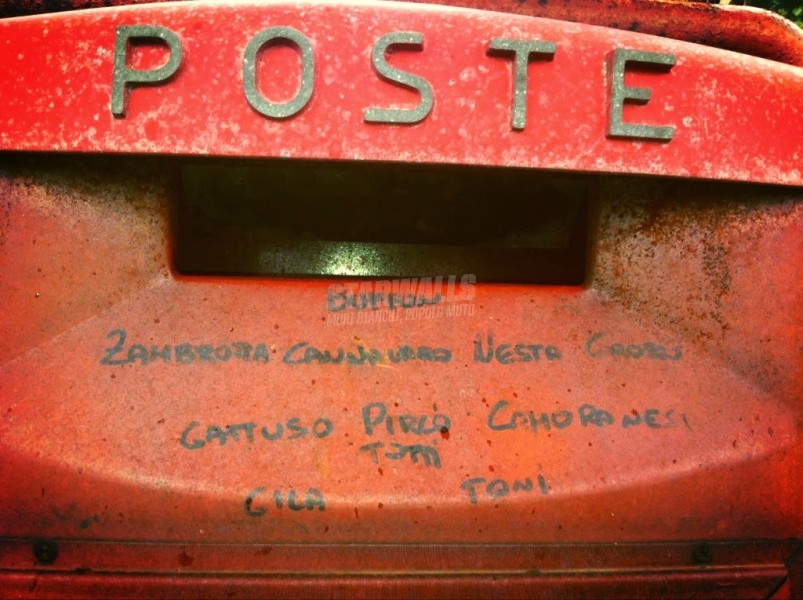 POSTE
STARWALLS
MURI BIANCHI, POPOLO MUTO
BUFFON
ZAMBROTTA CANNAVARO NESTA GROSSO
GATTUSO PIRLO CAMORANESI
TOTTI
GILA TONI